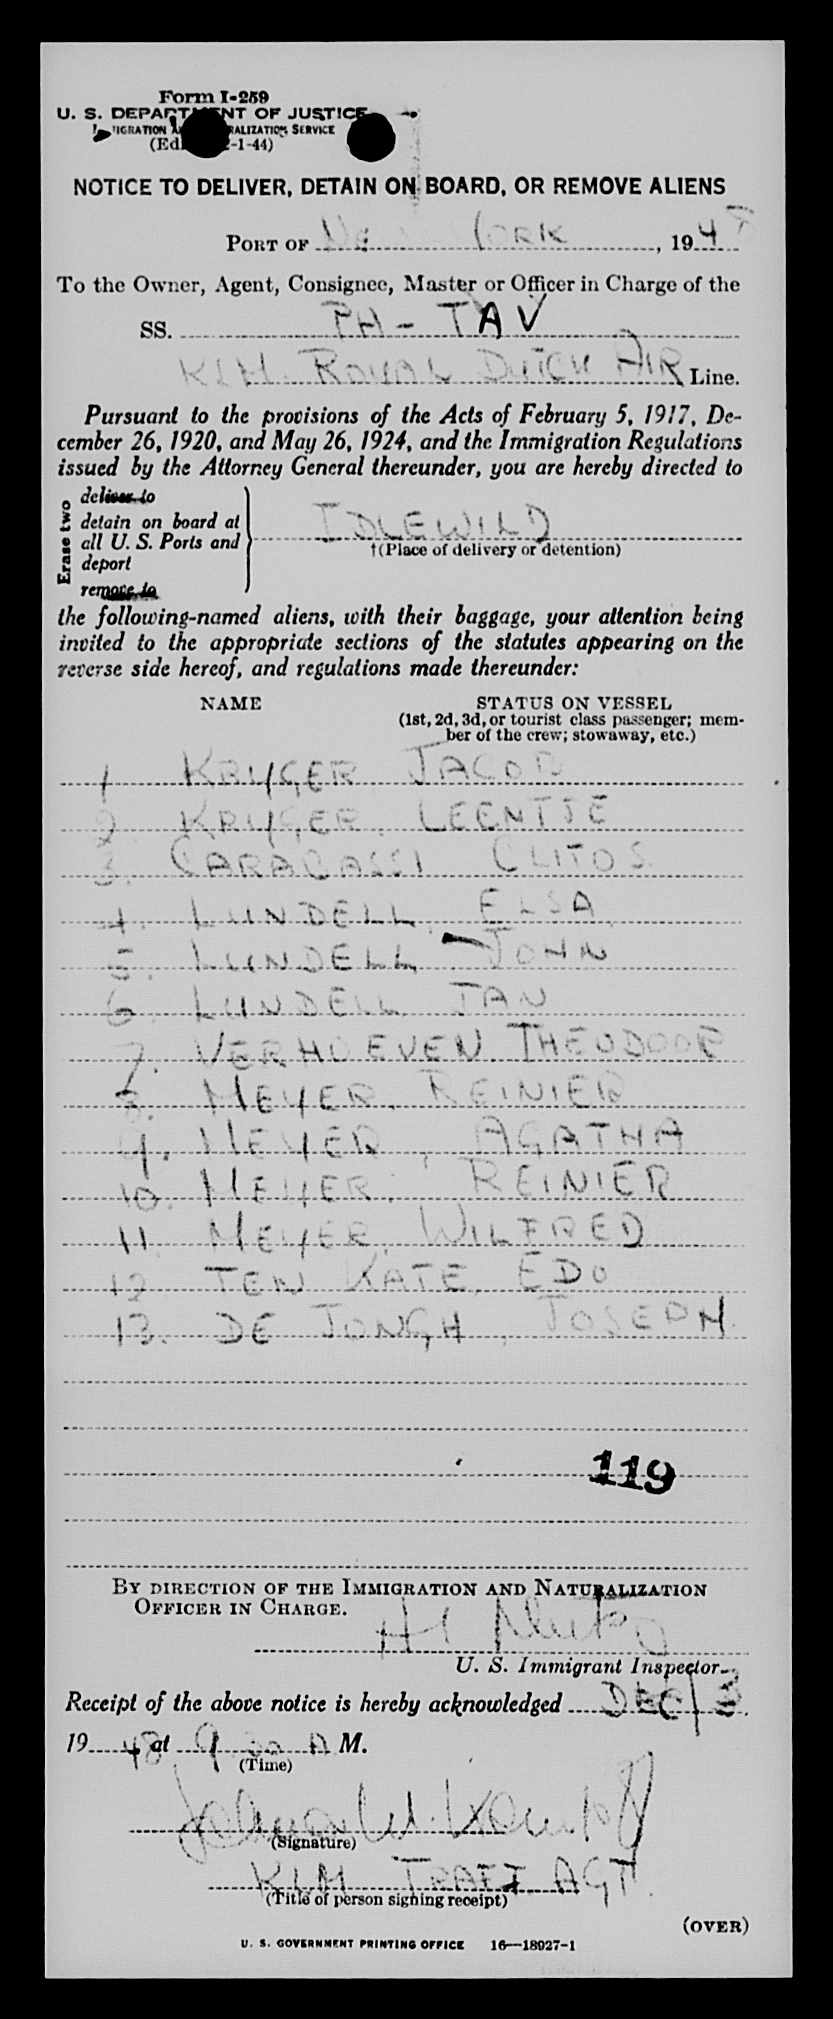 Form I-259
U. S. DEPARTMENT OF JUSTICE
IMMIGRATION AND NATURALIZATION SERVICE
(Ed. -1-44)
NOTICE TO DELIVER, DETAIN ON BOARD, OR REMOVE ALIENS
PORT OF New York, 1948
To the Owner, Agent, Consignee, Master or Officer in Charge of the
SS. PH - TAV
KLM. ROYAL DUTCH AIR Line.
Pursuant to the provisions of the Acts of February 5, 1917, De-
cember 26, 1920, and May 26, 1924, and the Immigration Regulations
issued by the Attorney General thereunder, you are hereby directed to
Erase two
deliver to
detain on board at
all U. S. Ports and
deport
remove to
IDLEWILD
†(Place of delivery or detention)
the following-named aliens, with their baggage, your attention being
invited to the appropriate sections of the statutes appearing on the
reverse side hereof, and regulations made thereunder:
NAME STATUS ON VESSEL
(1st, 2d, 3d, or tourist class passenger; mem-
ber of the crew; stowaway, etc.)
1 KRYGER JACOB
2. KRYGER, LEENTJE
3. CARACASSI CLITOS
4. LUNDELL, ELSA
5. LUNDELL, JOHN
6. LUNDELL JAN
7. VERHOEVEN THEODOOR
8. MEYER, REINIER
9. MEYER, AGATHA
10. MEYER, REINIER
11. MEYER, WILFRED
12 TEN KATE, EDO
13. DE JONGH, JOSEPH
119
BY DIRECTION OF THE IMMIGRATION AND NATURALIZATION
OFFICER IN CHARGE.
U. S. Immigrant Inspector.
Receipt of the above notice is hereby acknowledged DEC/3
1948 at 9 30 A M.
(Time)
(Signature)
KLM TRAFF. AGT.
(Title of person signing receipt)
(OVER)
U. S. GOVERNMENT PRINTING OFFICE 16—18927-1